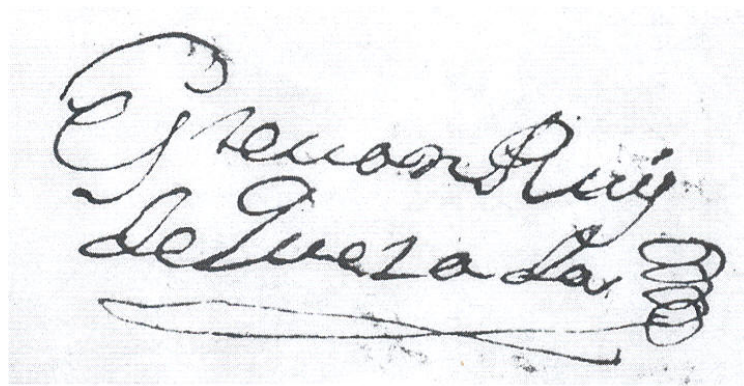 Esteuan Ruiz
de Quezada